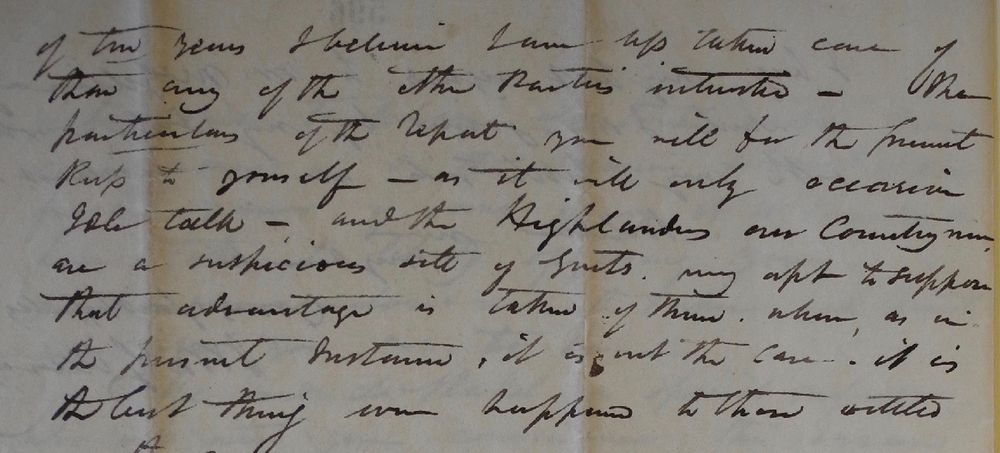 of two years I believe have less taken care of
than any of the other Parties interested — The
particulars of the Report you will for the present
Keep to yourself — as it will only occasion
Idle talk — and the Highlanders our Countrymen
are a suspicious sett of Gents. very apt to suppose
that advantage is taken of them. when, as in
the present Instance, it is not the case. it is
the best thing ever happened to those settled